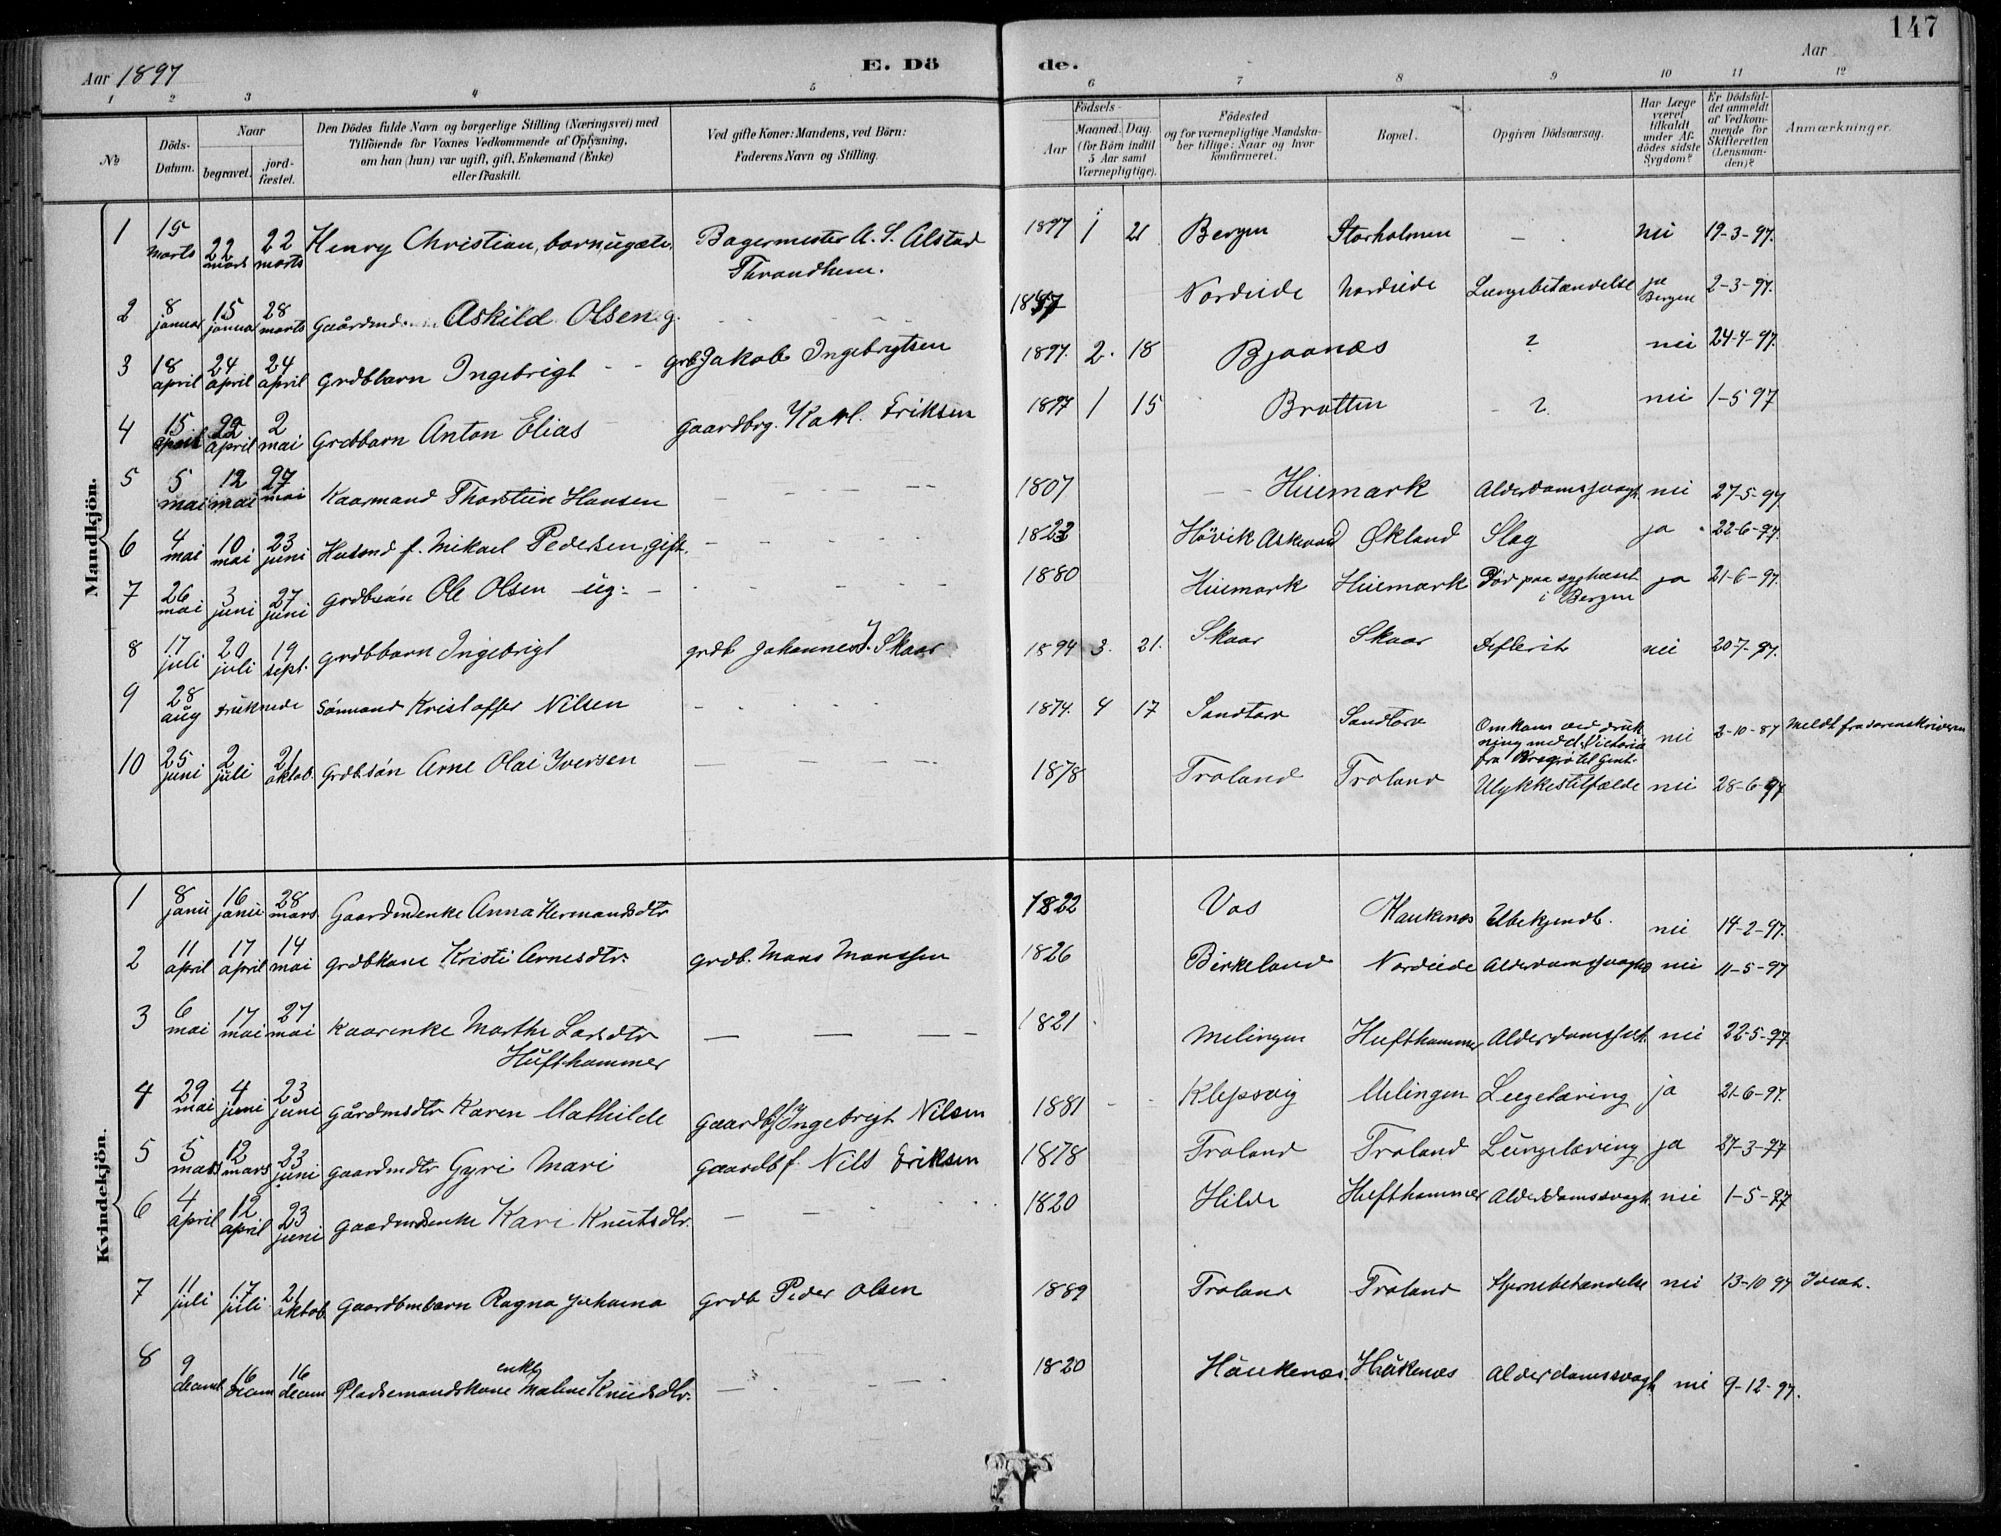 147
Aar 1897
E. Dö
de.
Aar
1 2 3 4 5 6 7 8 9 10 11 12
№
Döds-Datum.
Naar
begravet.
jord-fæstet.
Den Dödes fulde Navn og borgerlige Stilling (Næringsvei) med
Tilföiende for Voxnes Vedkommende af Oplysning,
om han (hun) var ugift, gift, Enkemand (Enke)
eller fraskilt.
Ved gifte Koner: Mandens, ved Börn:
Faderens Navn og Stilling.
Födsels-
Aar
Maaned. Dag.
(for Börn indtil
5 Aar samt
Værnepligtige).
Födested
og for værnepligtige Mandskaber tillige: Naar og hvor
konfirmeret.
Bopæl.
Opgiven Dödsaarsag.
Har Læge været tilkaldt under Afdödes sidste Sygdom?
Er Dödsfaldet anmeldt af Vedkommende for Skifteretten (Lensmanden)?
Anmærkninger.
Mandkjön.
1 15 marts 22 mars 22 marts Henry Christian, barn ugæte. Bagermester A. S. Alstad Thrandhem. 1897 1 21 Bergen Storholmen - nei 19-3-97.
2 8 januar 15 januar 28 marts Gaardmd. Askild Olsen g. Nordeide Nordeide Lungebetændelse Bergen 2-3-97.
3 18 april 24 april 24 april grdbbarn Ingebrigt grb Jakob Ingebrigtsen 1897. 2. 18 Bjaanæs ? nei 24-4-97.
4 15 april 22 april 2 mai Grdbbarn Anton Elias gaardbrg. Karl Eriksen 1897 1 15 Bratten - ? nei 1-5 97
5 5 mai 12 mai 27 mai Kaarmand Thorstein Hansen 1807 Huemark Alderdomssvagh nei 27-5-97
6 4 mai 10 mai 23 juni Husmd f. Mikael Pedersen, gift. 1823 Høvik Askvold Økland Slag ja 22-6-97.
7 26 mai 3 juni 27 juni grdbsön Ole Olsen ug- 1880 Huemark Huemark Död paa sygehuset i Bergen ja 21-6-97.
8 17 juli 20 juli 19 sept. grdbbarn Ingebrigt grdb Johannes J. Skaar 1894 3. 21. Skaar Skaar Defterit nei 20-7-97.
9 28 aug druknede Sömand Kristoffer Nilsen 1874. 4 17 Sandtorv Sandtorv Omkom ved drukning med d. Victoria fra Kragrö til Gent. nei 2-10-87 Meldt fra sorenskriveren
10 25 juni 2 juli 21 oktob. Grdbsön Arne Olai Iversen 1878 Troland Troland Ulykkestilfælde nei 28-6-97
Kvindekjön.
1 8 janu 16 janu 28 mars Gaardmdenke Anna Hermandsdtr 1822 Vos Haukenæs Ubekjendt. nei 14-2-97.
2 11 april 17 april 14 mai grdbkone Kristi Arnesdtr. grdb. Mons Monssen 1826 Birkeland Nordeide Alderdomssvaghed nei 11-5-97
3 6 mai 17 mai 27 mai Kaarenke Marthe Larsdtr Hufthammer 1821 Melingen Hufthammer Alderdomssvagh. nei 22-5-97.
4 29 mai 4 juni 23 juni gårdmsdtr Karen Mathilde gaardbf Ingebrigt Nilsen 1881 Klepsvig Melingen Lugetæring ja 21-6-97.
5 5 mars 12 mars 23 juni gaardmdtr Gyri Mari gaardbf. Nils Eriksen 1878 Troland Troland Lungetæring ja 27-3-97
6 4 april 12 april 23 juni gaardmdenke Kari Knutsdtr. 1820 Hilde Hufthammer Alderdomssvagh nei 1-5-97
7 11 juli 17 juli 21 oktob. gaardbmbarn Ragna Johana grdb Peder Olsen 1889 Troland Troland Hjernebetændelse nei 13-10 97 Idiot.
8 9 decmb 16 decm 16 decm Pladsemandskone enke Malene Knudsdtr. 1820 Haukenæs Haukenæs Alderdomssvagh nei 9-12-97.